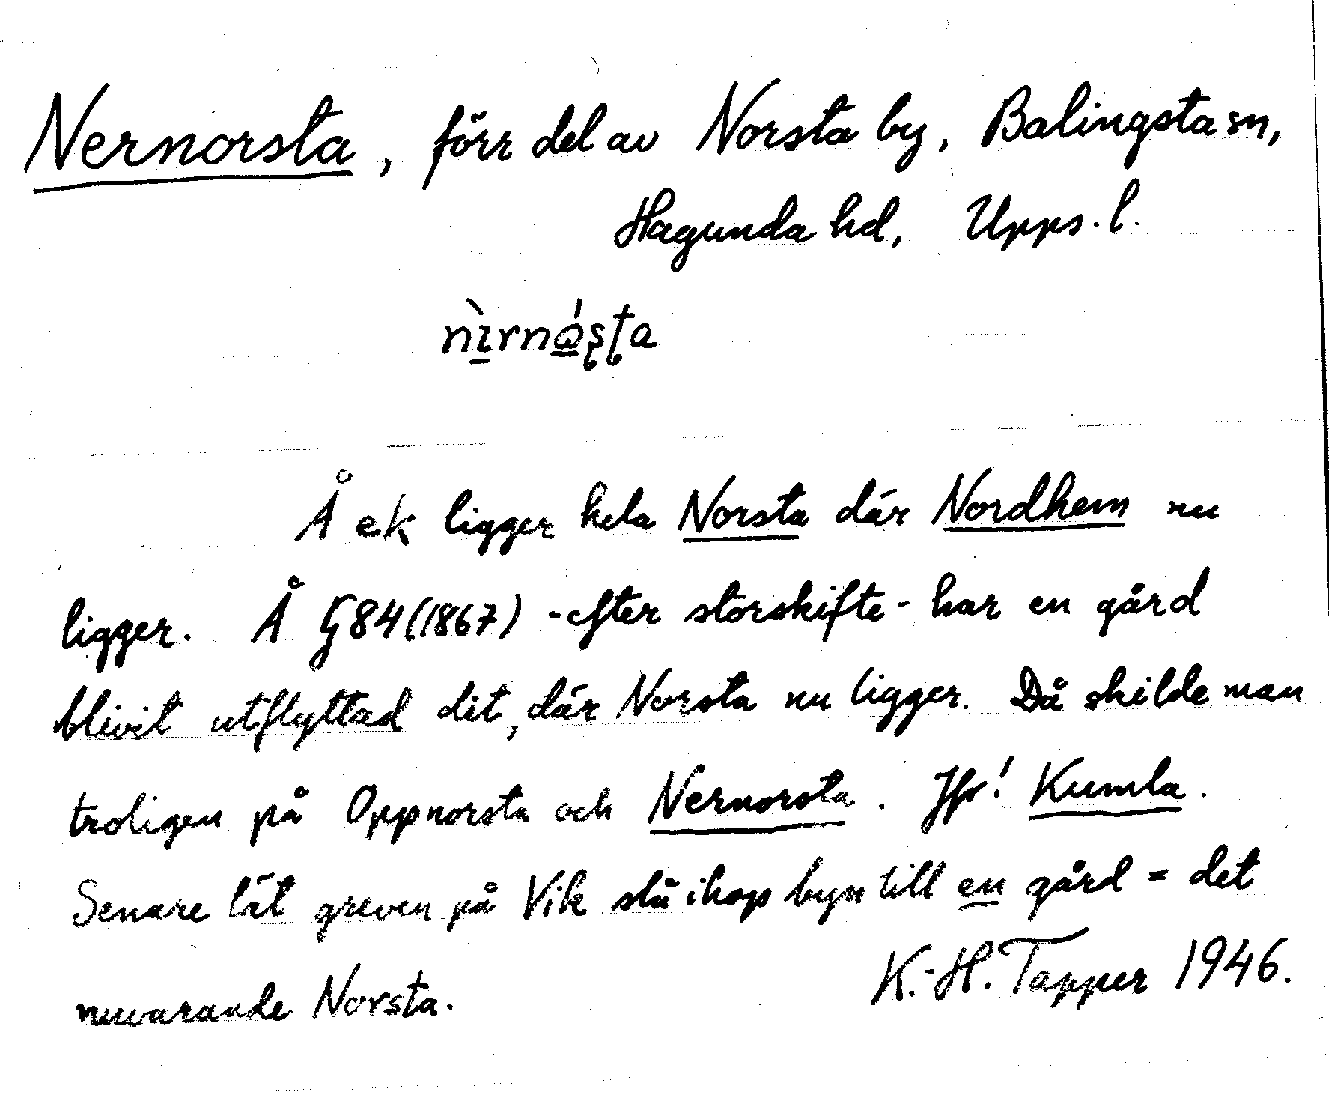 Nernorsta, förr del av Norsta by, Balingsta sn,
Hagunda hd, Upps. l.
nìrnǻʂʈa
Å ek ligger hela Norsta där Nordhem nu
ligger. Å G84(1867) - efter storskifte - har en gård
blivit utflyttad dit, där Norsta nu ligger. Då skilde man
troligen på Oppnorsta och Nernorsta. Jfr! Kumla.
Senare lät greven på Vik slå ihop byn till en gård = det
nuvarande Norsta.
K.-H. Tapper 1946.